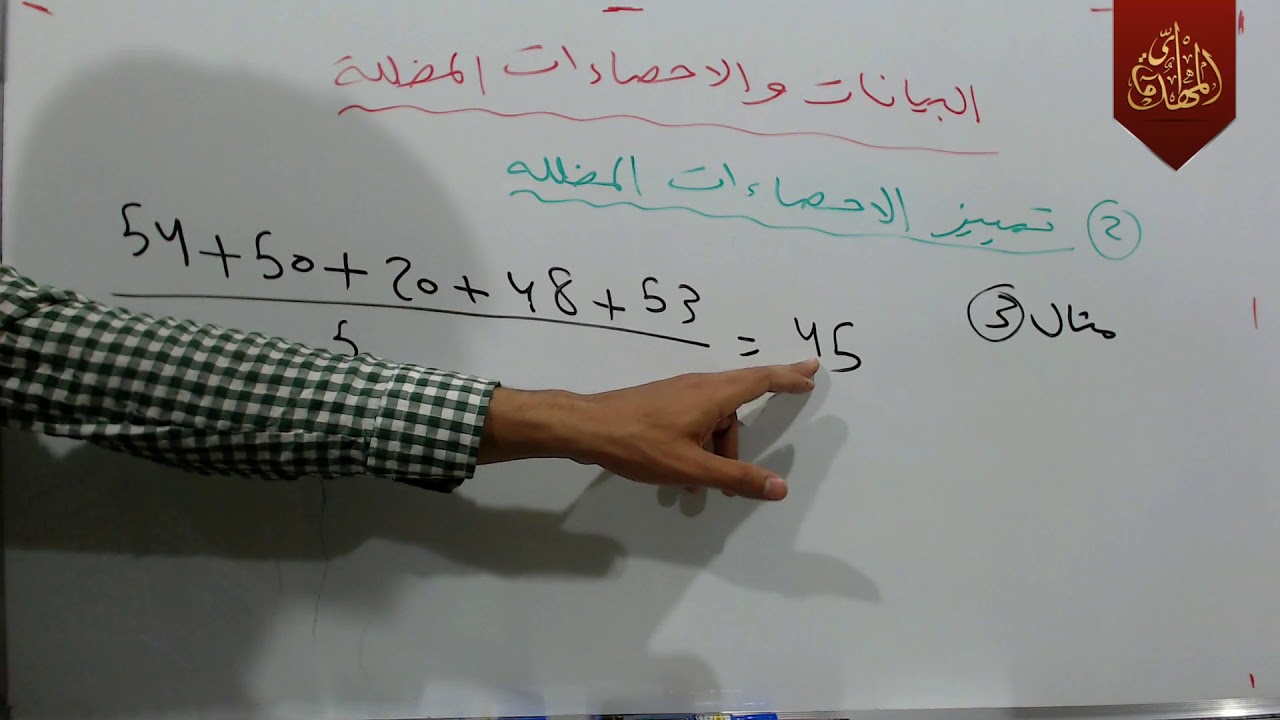 البيانات والاحصاءات المضللة
② تمييز الاحصاءات المضلله
مثال ③
54+50+20+48+53
5
= 45